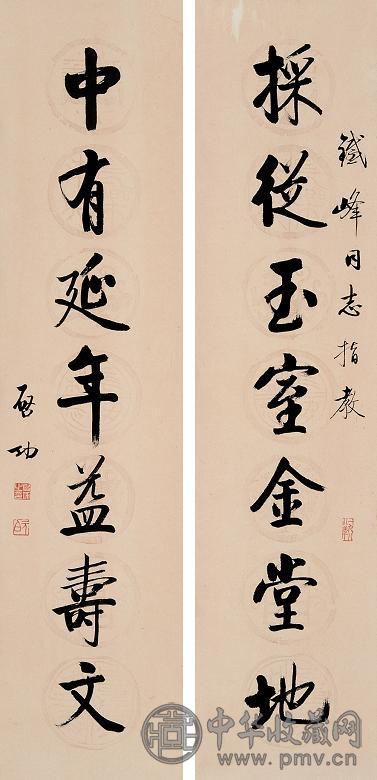 鐵峰同志指教
採從玉室金堂地
中有延年益壽文
啓功
中华收藏网
www.pmv.cn